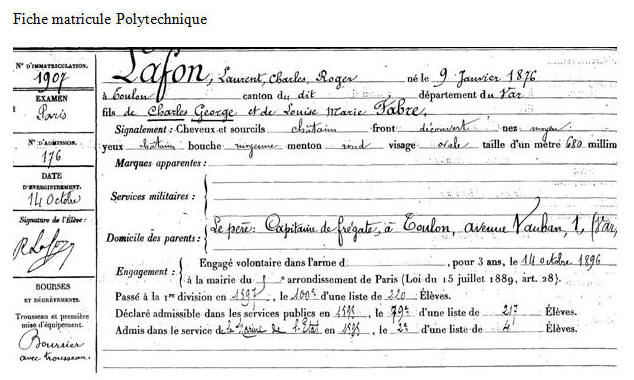 Fiche matricule Polytechnique
N° D'IMMATRICULATION.
1907
EXAMEN
Paris
N° D'ADMISSION.
176
DATE
D'ENREGISTREMENT.
14 Octobre
Signature de l'Élève :
R Lafon
BOURSES
ET DÉGRÈVEMENTS.
Trousseau et première
mise d'équipement.
Boursier
avec trousseau.
Lafon, Laurent, Charles, Roger né le 9 Janvier 1876
à Toulon canton du dit département du Var
fils de Charles George et de Louise Marie Fabre,
Signalement : Cheveux et sourcils châtain front découvert nez moyen
yeux châtain bouche moyenne menton rond visage ovale taille d'un mètre 680 millim
Marques apparentes :
Services militaires :
Domicile des parents : Le père : Capitaine de frégate, à Toulon, avenue Vauban, 1, (Var,
Engagement : Engagé volontaire dans l'arme d , pour 3 ans, le 14 octobre 1896
à la mairie du 5e arrondissement de Paris (Loi du 15 juillet 1889, art. 28).
Passé à la 1re division en 1897, le 100e d'une liste de 220 Élèves.
Déclaré admissible dans les services publics en 1898, le 79e d'une liste de 217 Élèves.
Admis dans le service de la Marine de l'État en 1898, le 2e d'une liste de 4 Élèves.